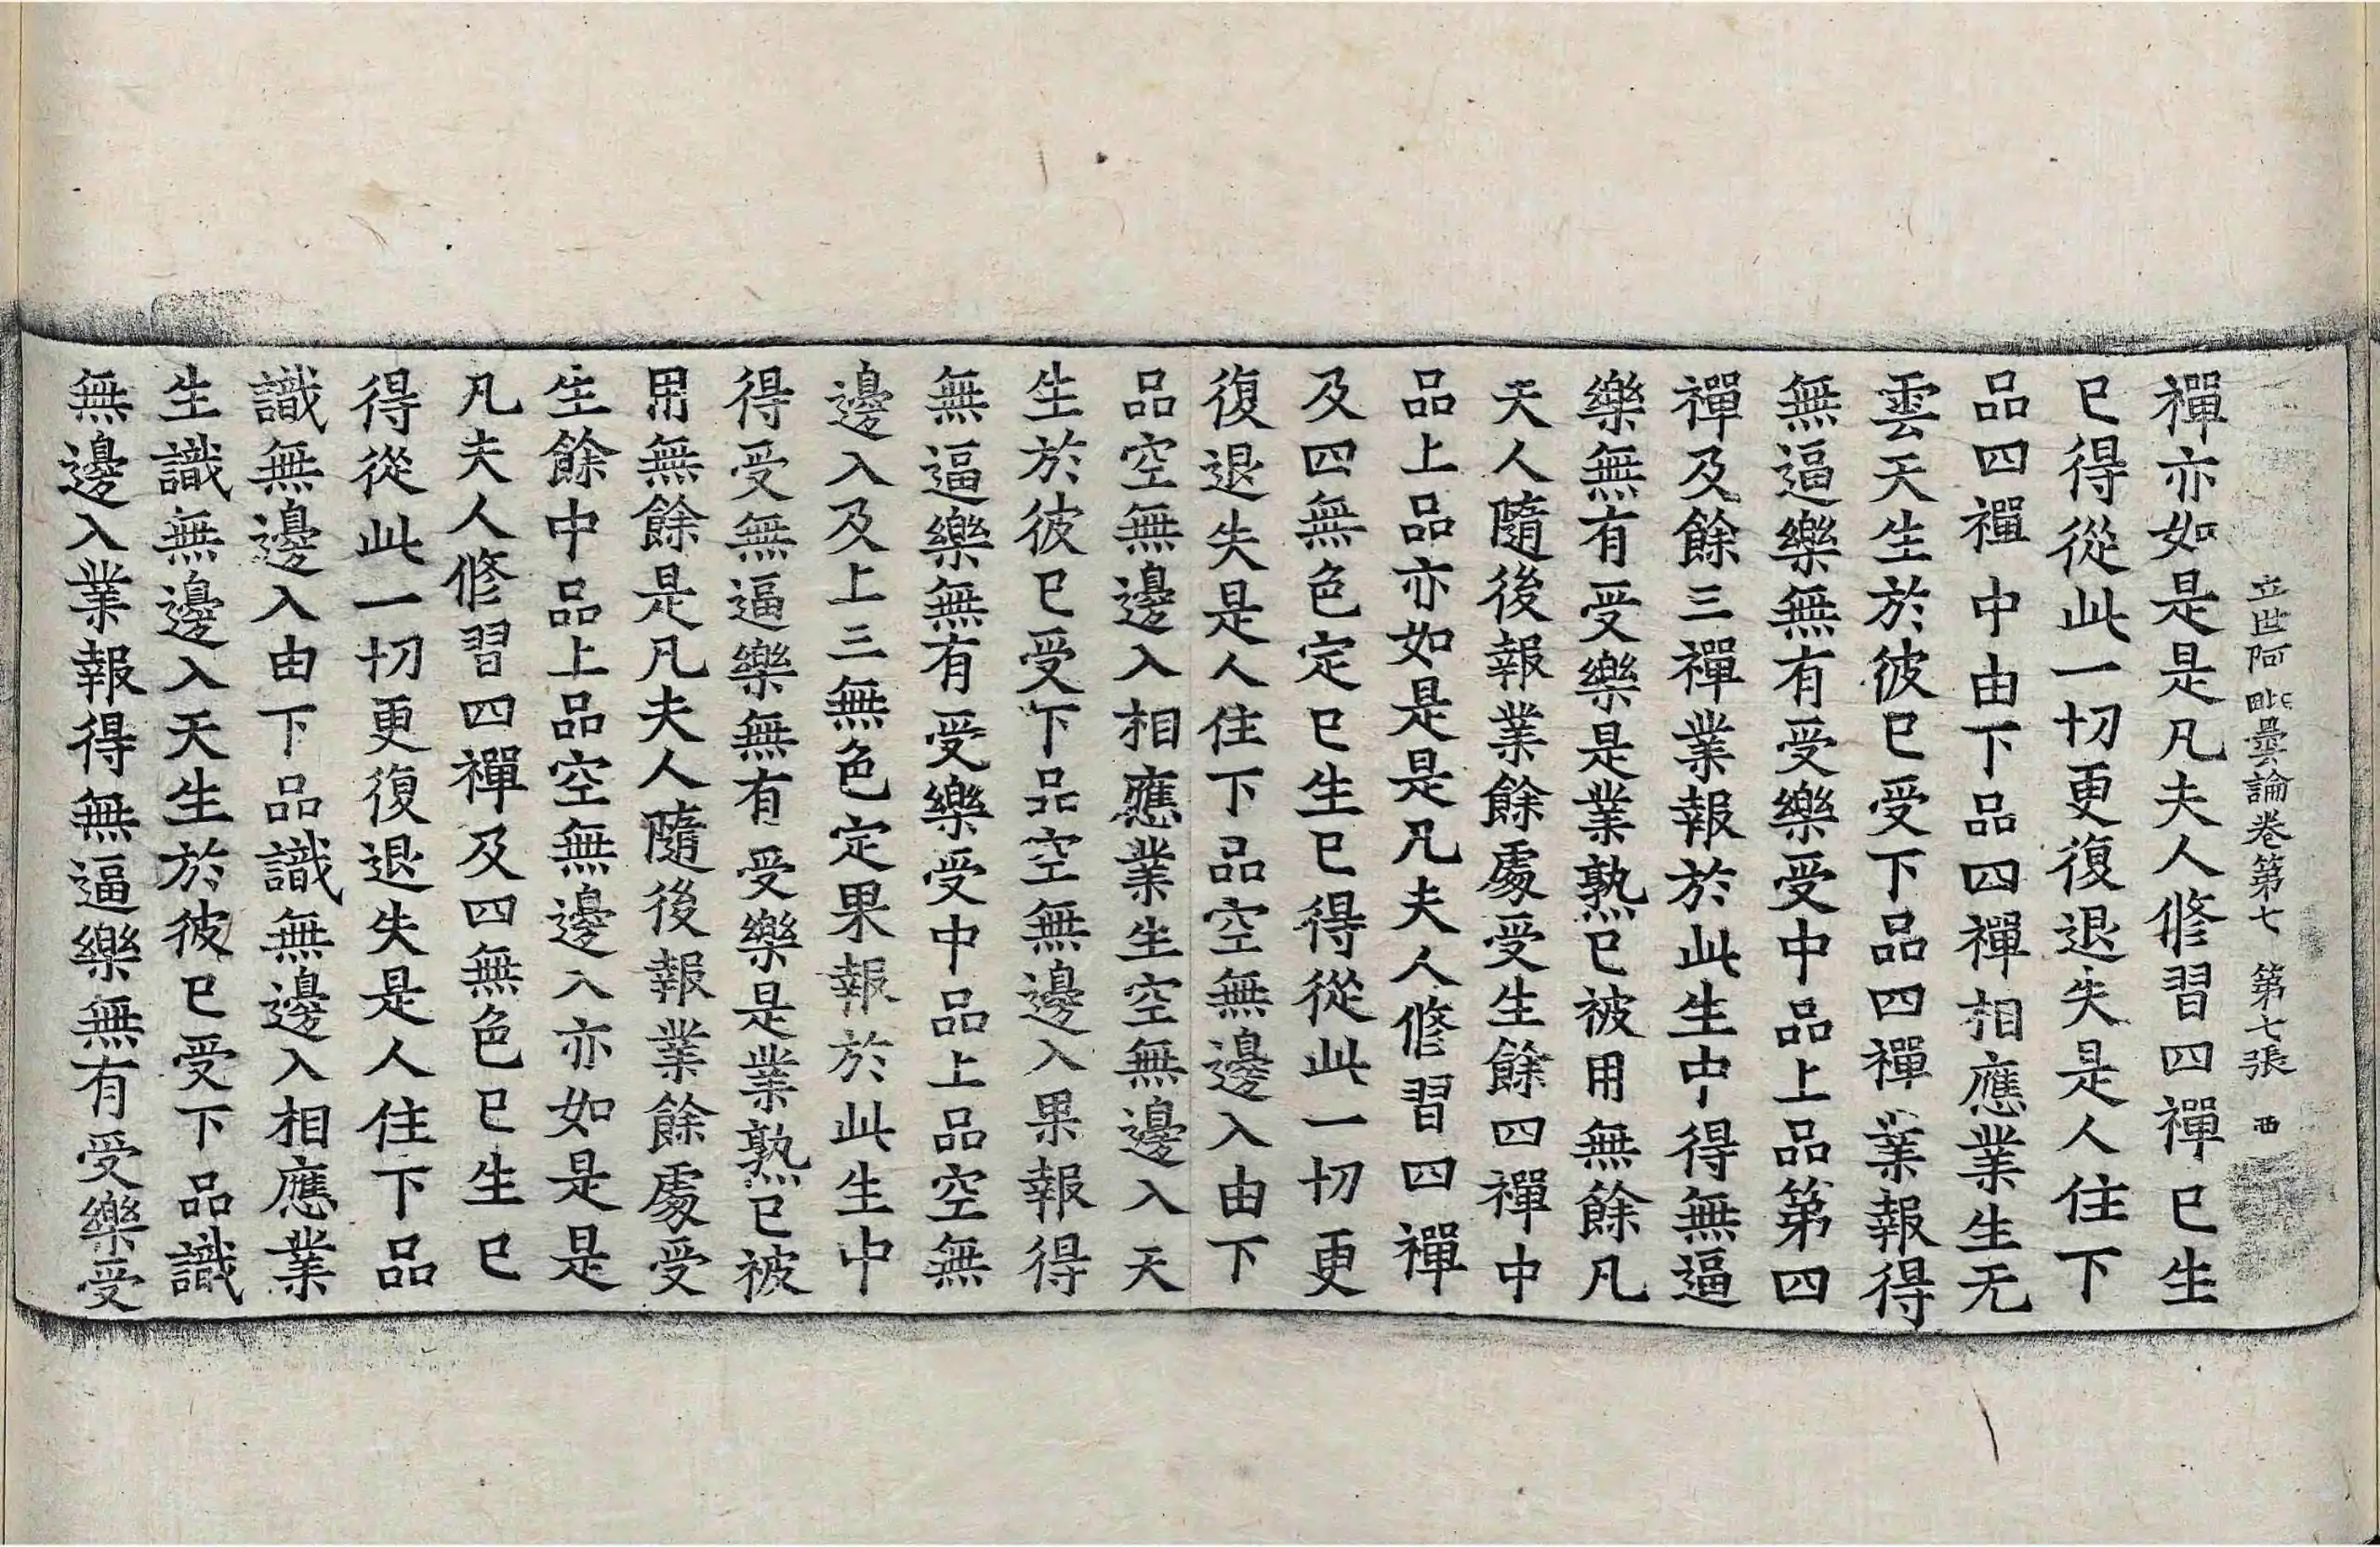 立世阿毗曇論卷第七 第七張 西
禪亦如是是凡夫人修習四禪已生
已得從此一切更復退失是人住下
品四禪中由下品四禪相應業生无
雲天生於彼已受下品四禪業報得
無逼樂無有受樂受中品上品第四
禪及餘三禪業報於此生中得無逼
樂無有受樂是業熟已被用無餘凡
夫人隨後報業餘處受生餘四禪中
品上品亦如是是凡夫人修習四禪
及四無色定已生已得從此一切更
復退失是人住下品空無邊入由下
品空無邊入相應業生空無邊入天
生於彼已受下品空無邊入果報得
無逼樂無有受樂受中品上品空無
邊入及上三無色定果報於此生中
得受無逼樂無有受樂是業熟已被
用無餘是凡夫人隨後報業餘處受
生餘中品上品空無邊入亦如是是
凡夫人修習四禪及四無色已生已
得從此一切更復退失是人住下品
識無邊入由下品識無邊入相應業
生識無邊入天生於彼已受下品識
無邊入業報得無逼樂無有受樂受